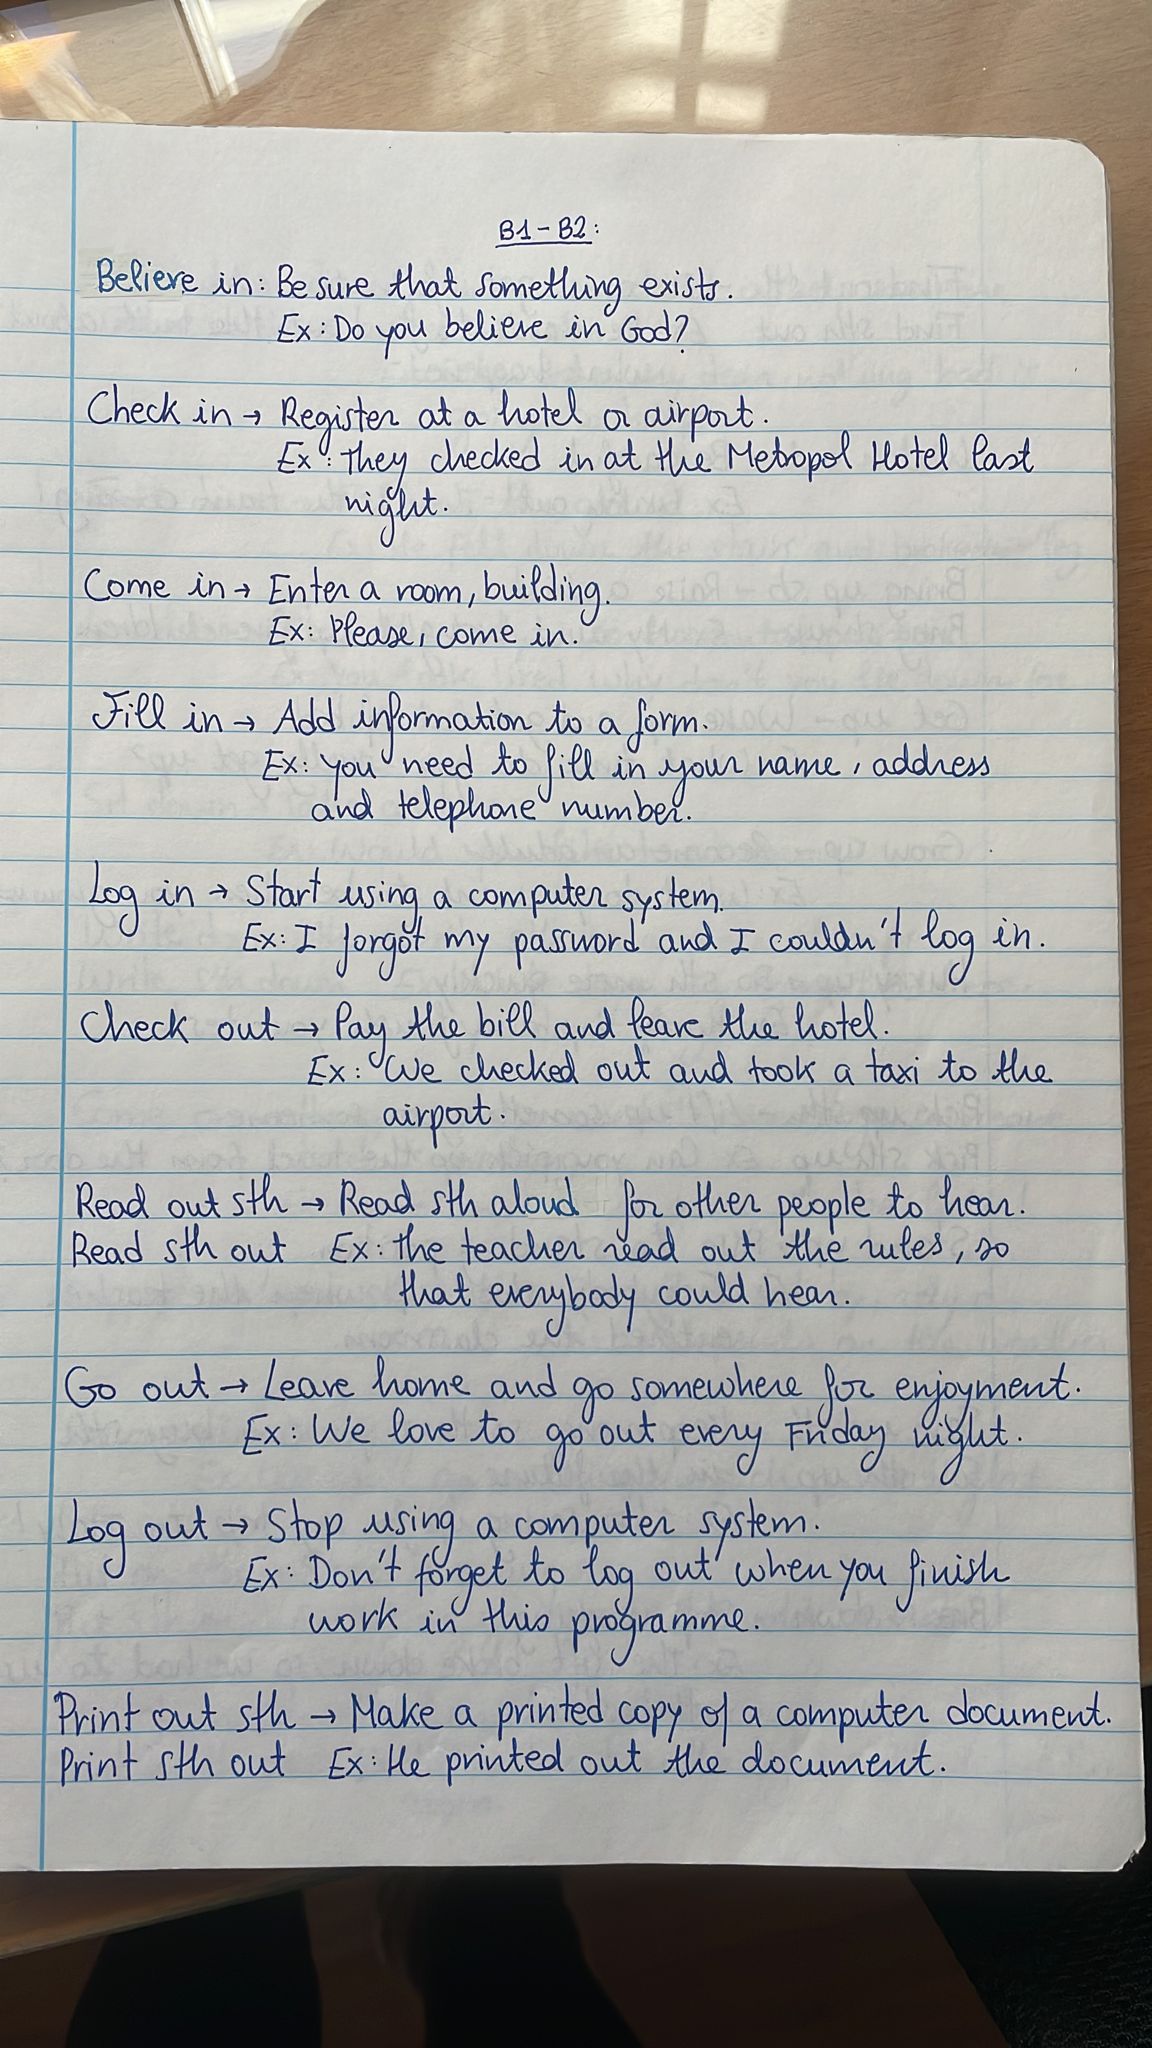 B1-B2:
Believe in: Be sure that something exists.
Ex: Do you believe in God?
Check in → Register at a hotel or airport.
Ex: They checked in at the Metropol Hotel last
night.
Come in → Enter a room, building.
Ex: Please, come in.
Fill in → Add information to a form.
Ex: you need to fill in your name, address
and telephone number.
Log in → Start using a computer system.
Ex: I forgot my password and I couldn't log in.
Check out → Pay the bill and leave the hotel.
Ex: We checked out and took a taxi to the
airport.
Read out sth → Read sth aloud for other people to hear.
Read sth out Ex: the teacher read out the rules, so
that everybody could hear.
Go out → Leave home and go somewhere for enjoyment.
Ex: We love to go out every Friday night.
Log out → Stop using a computer system.
Ex: Don't forget to log out when you finish
work in this programme.
Print out sth → Make a printed copy of a computer document.
Print sth out Ex: He printed out the document.